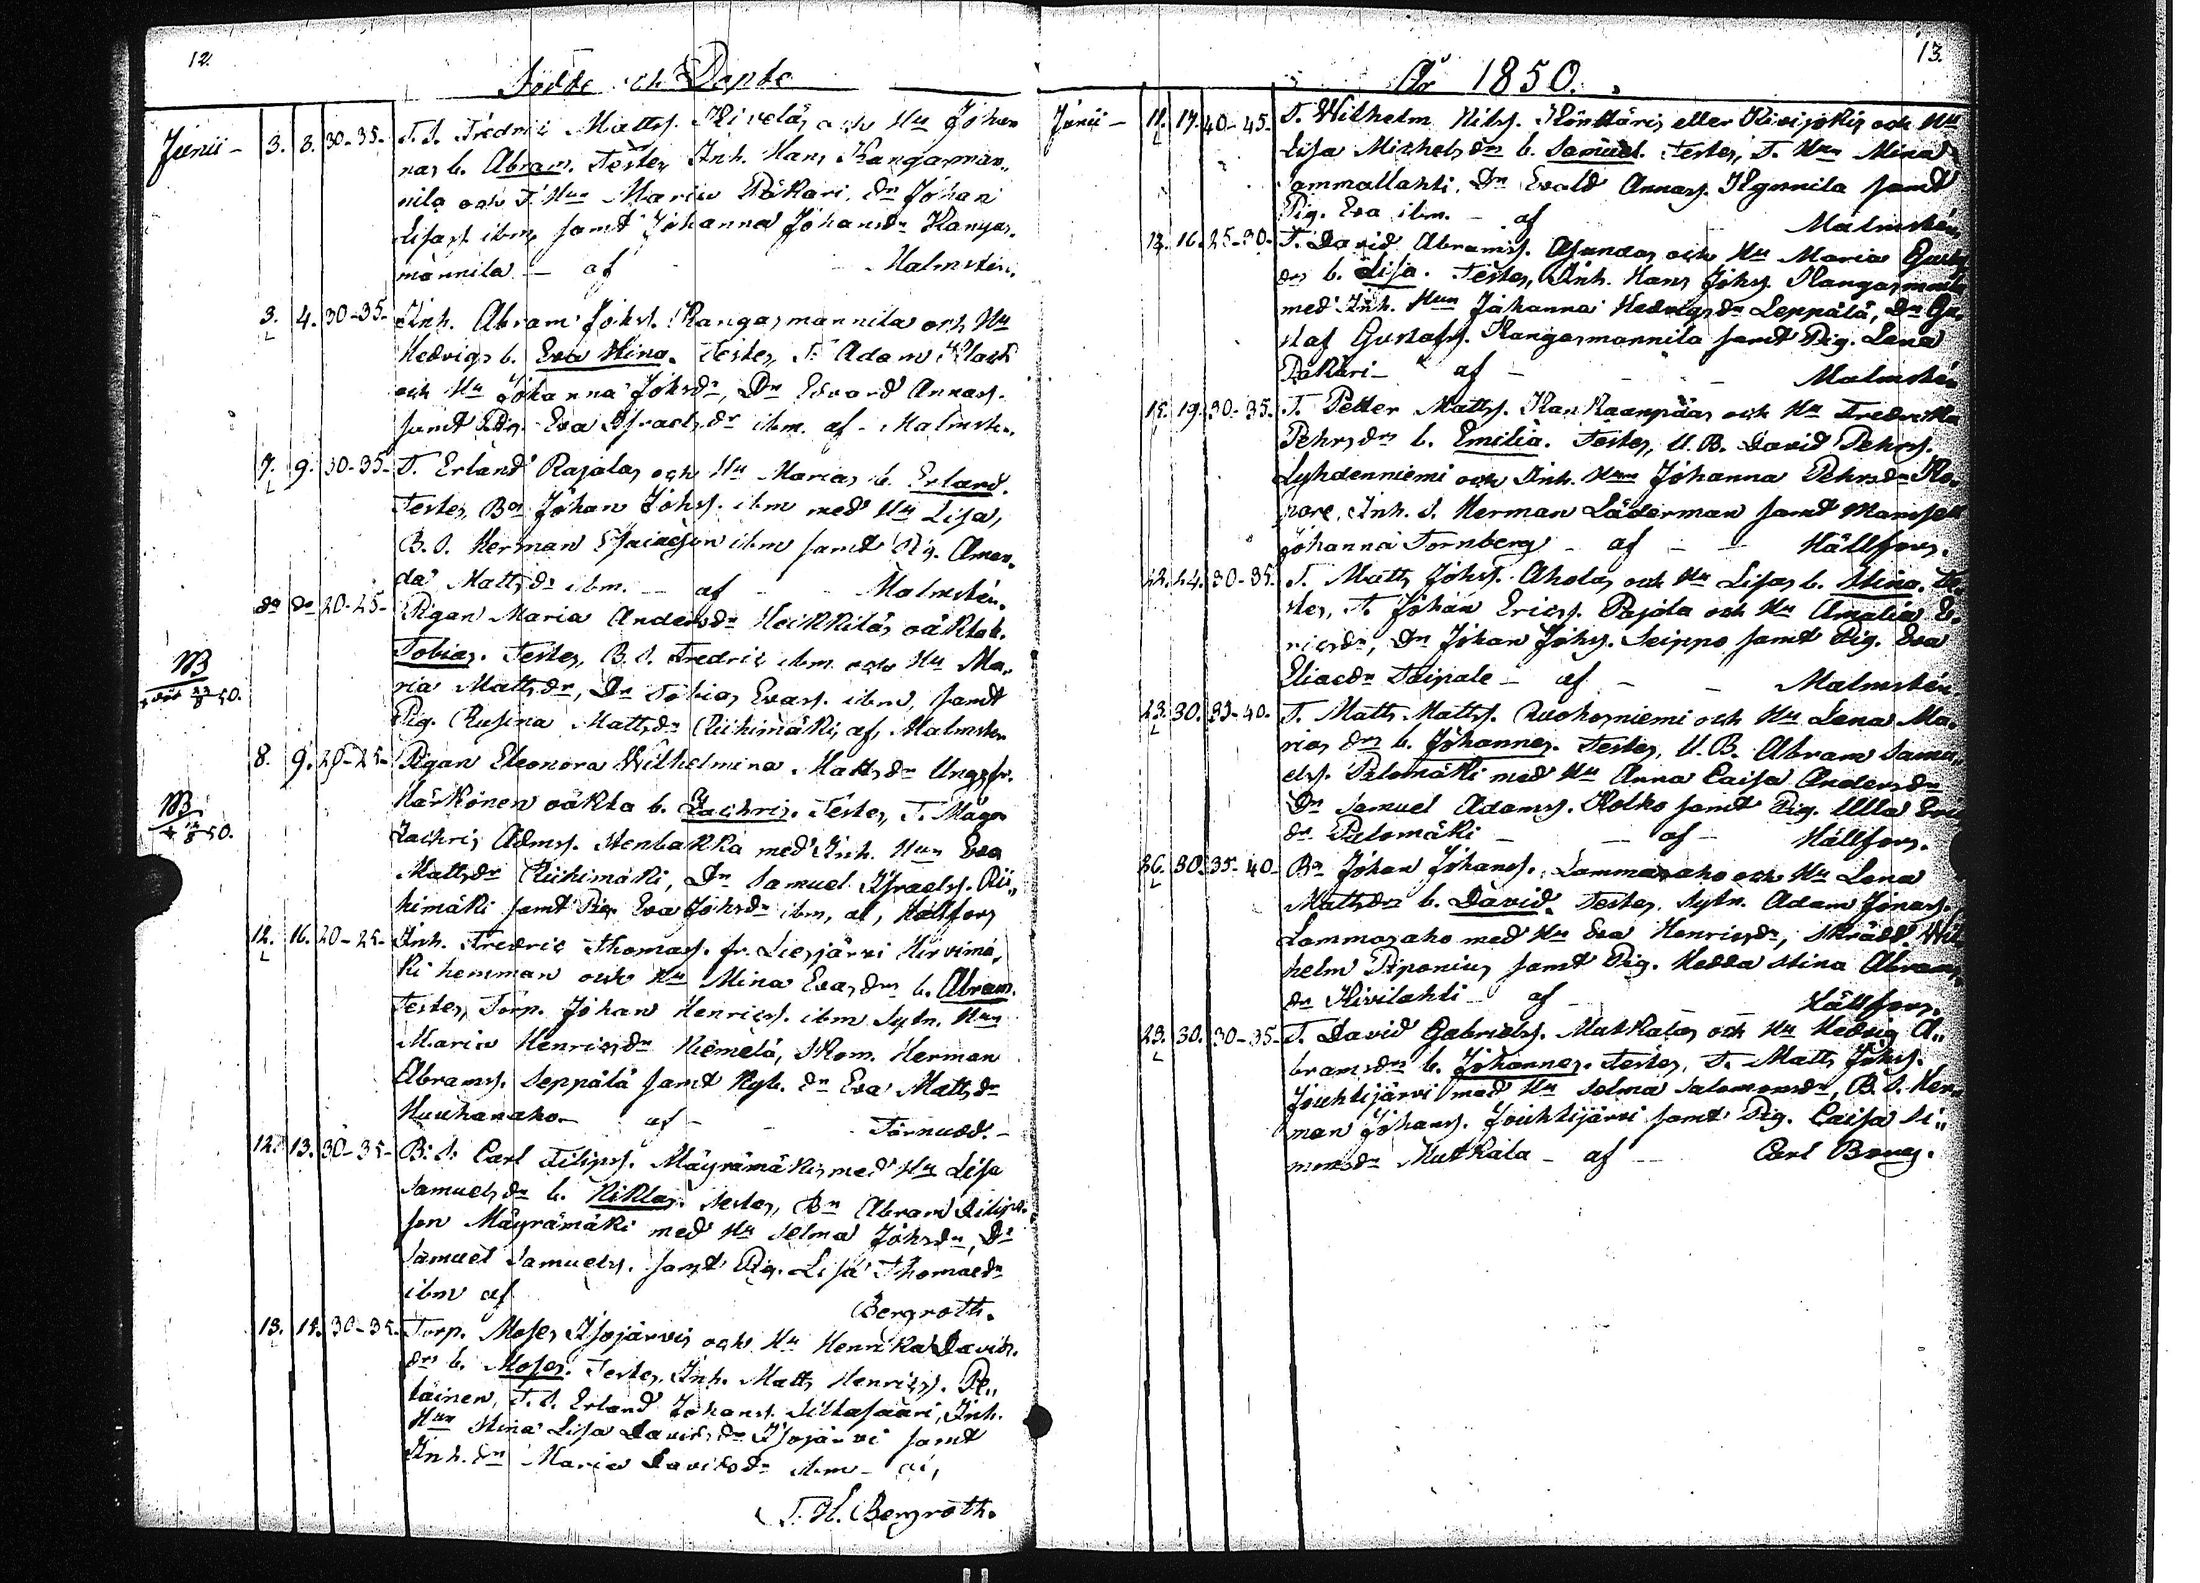 12.
Födde och Döpte
Junii - 3. 8. 30-35. T. S. Fredric Matts. Kiveläs och Hu Johan
nas b. Abram. Testes Inh. Hans Kangasmän„
nila och T. Hun Maria Påkäri, Dn Johan
Lisas. ibm, samt Johanna Johansdr Kangas„
männila - af Malmstén.
3. 4. 30-35. Inh. Abram Johs. Kangasmannila och Hu
Hedvigs b. Eva Stina. Testes T. Adam
och Hu Johanna Johsdr, Dn Edvard Annas.
samt Pig. Eva Israelsdr ibm. af - Malmstén.
7. 9. 30-35. T. Erland Rajalas och Hu Marias b. Erland.
Testes, Bn Johan Johs. ibm med Hu Lisa,
B. S. Herman Esaiaeson ibm samt Pig. Aman„
da Mattsdr ibm. - af Malmstén.
do do 20-25- Pigan Maria Andersdr Heikkiläs oäkta b.
Tobias. Testes, B. S. Fredric ibm och Hu Ma„
ria Mattsdr, Dn Tobias Evas. ibm, samt
Pig. Rusina Mattsdr Riihimäki, af, Malmstén
NB
död 22/8 50.
8. 9. 20-25- Pigan Eleonora Wilhelmina Mattsdr Ungs fr.
Härkönen oäkta b. Zachris. Testes, T. Måg
Zachris Adms. Stenbakka med Inh. Hun Eva
Mattsdr Riihimäki, Dn Samuel Israels. Rii„
himäki samt Pig. Eva Johsdr ibm, af, Hällfors
NB
12. 16. 20-25- Inh. Fredric Thomas. fr. Liesjärvi Hirvimä„
ki hemman och Hu Mina Evasdrs b. Abram.
Testes, Torp. Johan Henrics. ibm Sytn. Hun
Maria Henricsdr Niemelä, Skom. Herman
Abrams. Seppälä samt Nyb. dr Eva Mattsdr
Huuhanaho - af - Törnudd.
12. 13. 30-35- B. S. Carl Filips. Mäyrämäkis med Hu Lisa
Samuelsdr b. Niklas. Testes, Bn Abram Filips„
son Mäyrämäki med Hu Selma Johsdr, Dn
Samuel Samuels. samt Pig. Lisa Thomaedr
ibm af Bergroth.
13. 14. 30-35- Torp. Moses Isojärvis och Hu Henrika Davids„
drs b. Moses. Testes, Inh. Matts Henrics. Pe„
läinen, T. S. Erland Johans. Siltasaari, Inh.
Hun Stina Lisa Davidsdr Isojärvi samt
Inh. dr Maria Davidsdr ibm - af,
T. H. Bergroth.
13.
År 1850.
Junii - 11. 17. 40-45. T. Wilhelm Nils. Könttäris eller Kivijokis och Hu
Lisa Michelsdrs b. Samuel. Testes, T. Hun Mina
Sammallahti, Dn Evald Annas. samt
Pig. Eva ibm. - af Malmstén
13. 16. 25-30- T. David Abrams. Asundas och Hu Maria
drs b. Lisa. Testes, Inh. Hans Johs. Kangasmannila
med Inh. Hun Johanna Hedvigsdr Leppälä, Dn Gu„
staf Gustafs. Kangasmannila samt Pig. Lena
Påkäri - af - Malmstén
15. 19. 30-35. T. Petter Matts. Kankaanpääs och Hu Fredrika
Pehrsdrs b. Emilia. Testes, U. B. David Pehrs.
Lyhdenniemi och Inh. Hun Johanna Pehrsdr
Inh. S. Herman Läderman samt Mamsell
Johanna Tornberg - af - Hällfors.
22. 24. 30-35. T. Matts Johs. Aholas och Hu Lisas b. Stina. Te„
stes, T. Johan Erics. Rajala och Hu Amalia E„
ricsdr, Dn Johan Johs. Seippo samt Pig. Eva
Eliaedr Taipale - af - Malmstén
23. 30. 35-40. T. Matts Matts. Ruohoniemi och Hu Lena Ma„
rias drs b. Johannes. Testes, U. B. Abram Samu„
els. Palomäki med Hu Anna Caisa Andersdr
Dn Samuel Adams. Kolko samt Pig. Ulla
dr Palomäki - af - Hällfors.
26. 30. 35-40. Bn Johan Johans. Lammasaho och Hu Lena
Mattsdrs b. David. Testes, Sytn. Adam Jonas.
Lammasaho med Hu Eva Henricsdr, Skrädd. Wil„
helm Piponius samt Pig. Hedda Stina Abrams„
dr Kivilahti - af - Hällfors.
29. 30. 30-35- T. David Gabriels. Matkalas och Hu Hedvig A„
bramsdrs b. Johannes. Testes, T. Matts Johs.
Jouhtijärvi med Hu Selma Salomonsdr, B. S. Her„
man Johans. Jouhtijärvi samt Pig. Caisa Si„
monsdr Matkala - af - Carl Boucg.